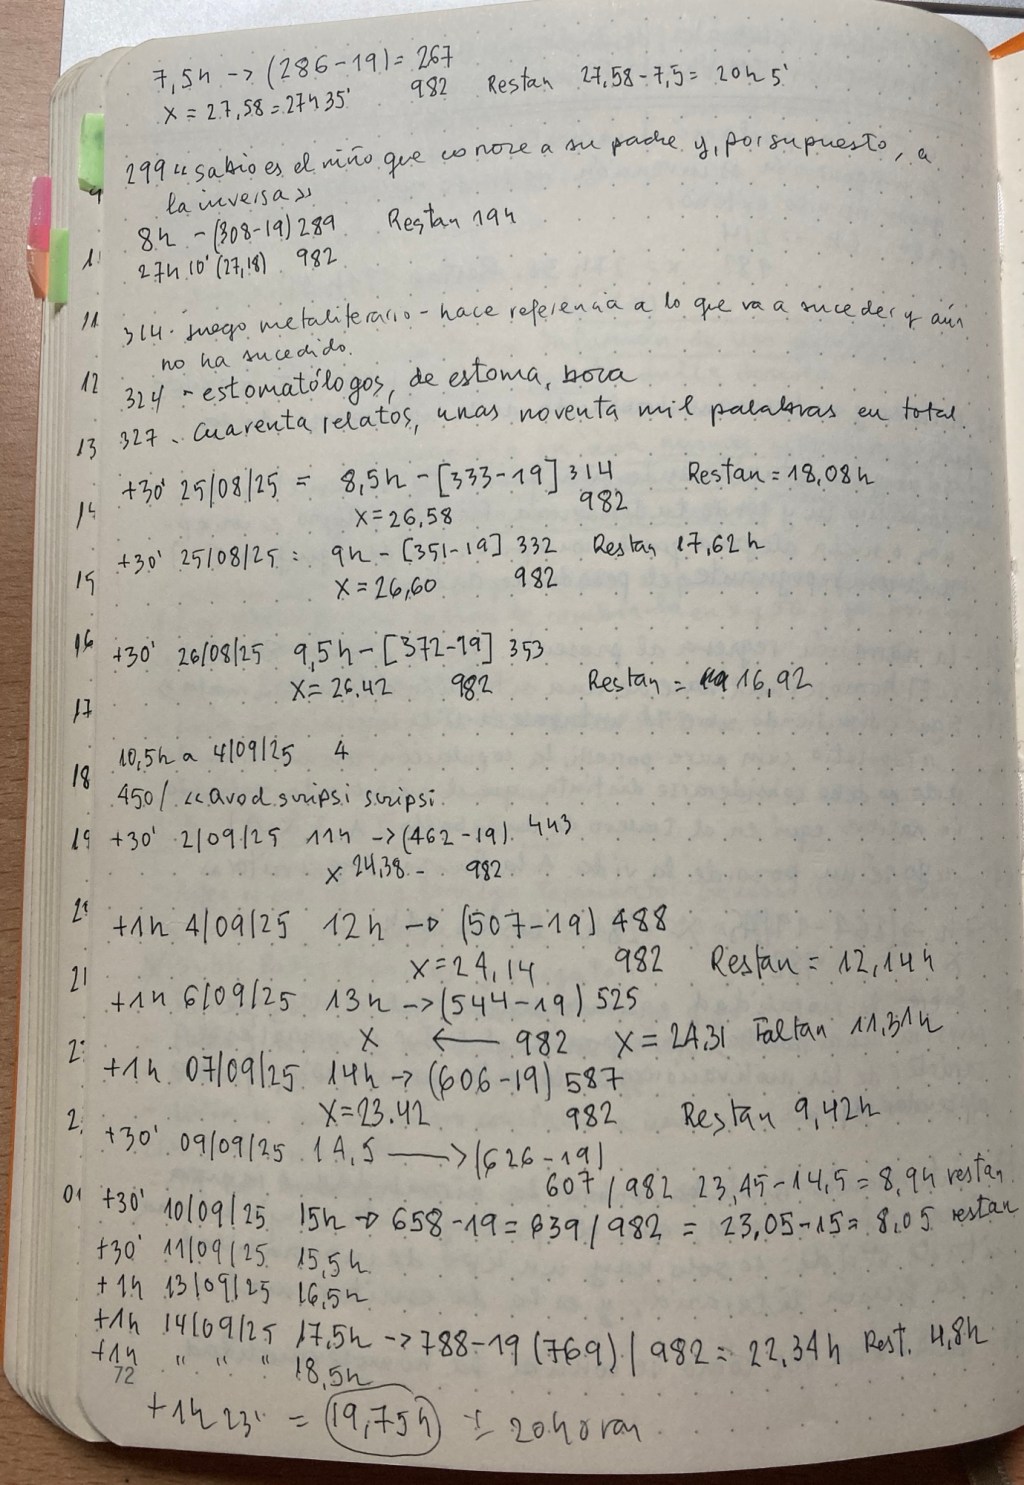 7,5h -> (286-19) = 267
x = 27,58 = 27h35' 982 Restan 27,58-7,5 = 20h 5'
299 "sabio es el niño que conoce a su padre y, por supuesto, a
la inversa"
8h - (308-19) 289 Restan 19h
27h 10' (27,18) 982
314. juego metaliterario - hace referencia a lo que va a suceder y aún
no ha sucedido.
324 - estomatólogos, de estoma, boca
327 - cuarenta relatos, unas noventa mil palabras en total.
+30' 25/08/25 = 8,5h - [333-19] 314 Restan = 18,08h
x = 26,58 982
+30' 25/08/25 : 9h - [351-19] 332 Restan 17,62h
x = 26,60 982
+30' 26/08/25 9,5h - [372-19] 353
x = 26.42 982 Restan = 16,92
10,5h a 4/09/25 4
450/ scripsi scripsi.
+30' 2/09/25 11h -> (462-19). 443
x 24,38 - 982
+1h 4/09/25 12h -> (507-19) 488
x = 24,14 982 Restan = 12,14h
+1h 6/09/25 13h -> (544-19) 525
x <- 982 x = 24,31 Faltan 11,31h
+1h 07/09/25 14h -> (606-19) 587
x = 23.42 982 Restan 9,42h
+30' 09/09/25 14,5 -> (626-19)
607 / 982 23,45-14,5 = 8,94 restan
+30' 10/09/25 15h -> 658-19 = 639 / 982 = 23,05-15 = 8,05 restan
+30' 11/09/25 15,5h
+1h 13/09/25 16,5h
+1h 14/09/25 17,5h -> 788-19 (769) / 982 = 22,34h Rest. 4,8h
+1h " " " 18,5h
72
+1h 23' = 19,75h ± 20 horas
11
12
13
14
15
16
17
18
19
21